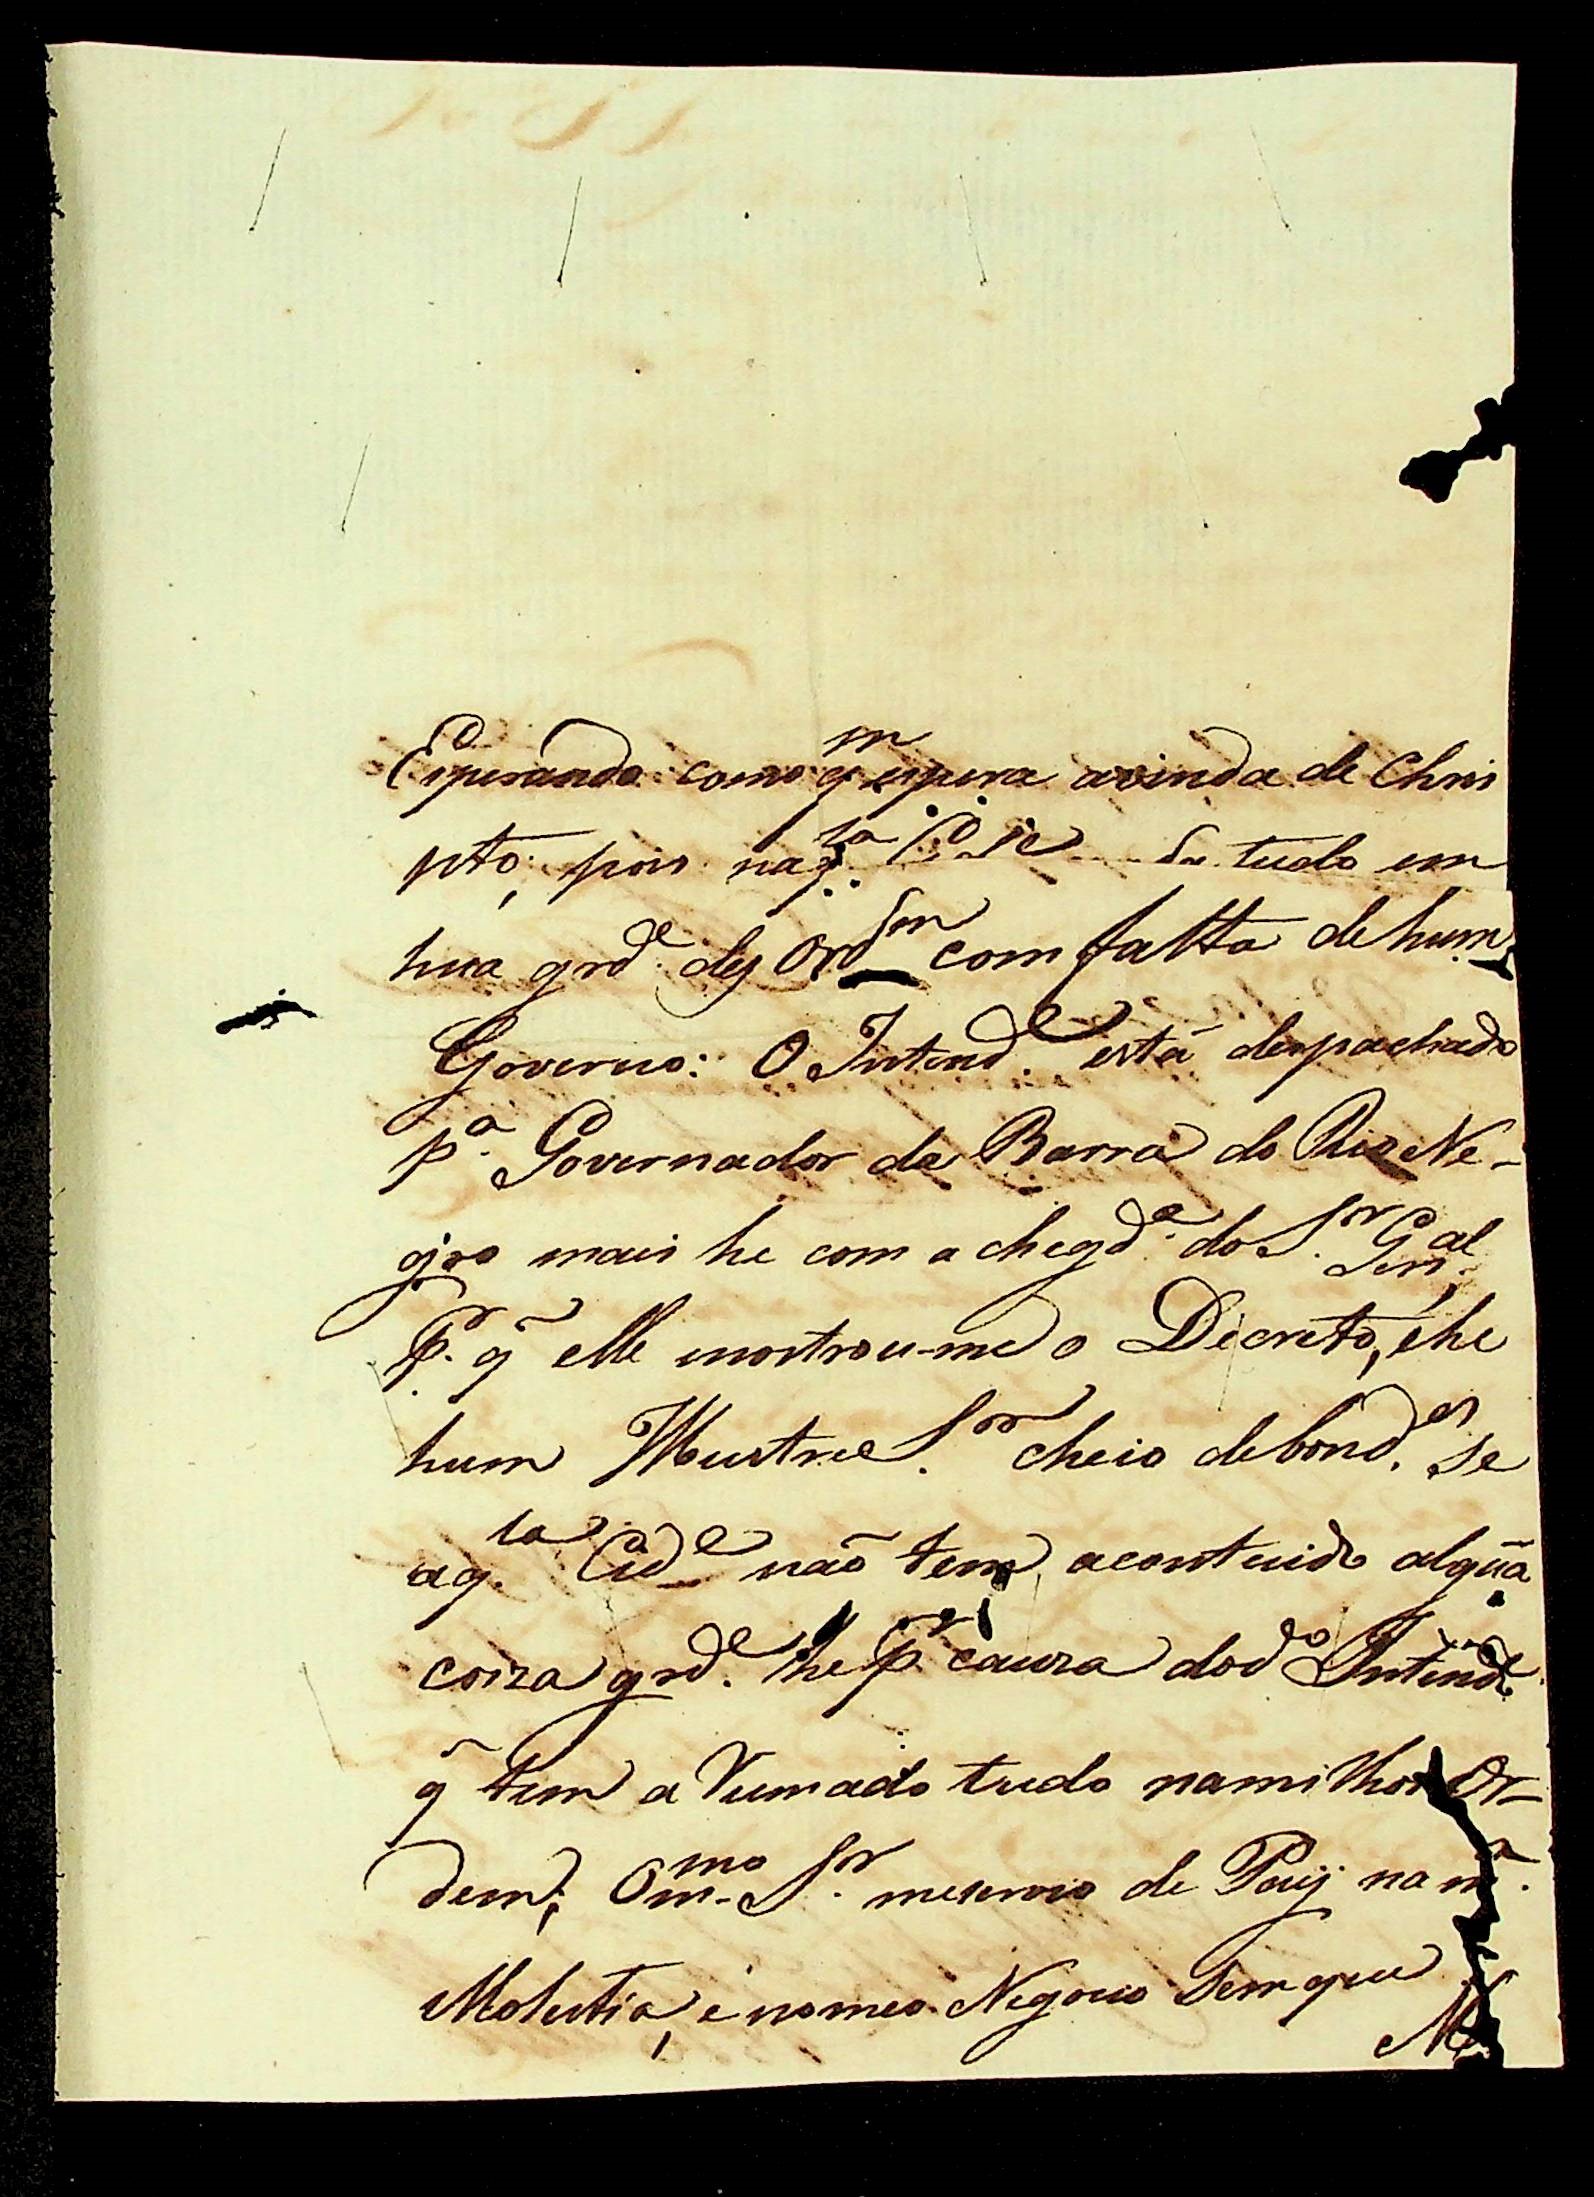 Esperando como q.m espera avinda de Chris
pto; pois naq.la Cid.e tudo em
hua grd.e des Ord.em com falta de hum
Governo: O Intend.e está despachado
p.a Governador da Barra do Rio Ne-
gro mais he com a chegd.a do S.r Gen.al
P.r q̃ elle mostrou-me o Decreto, é he
hum Illustre S.or cheio de bond.es se
aq.la Cid.e naõ tem acontecido algũa
coiza grd.e he p.r cauza do d.o Intend.e
q̃ tem a Rumado tudo na milhor Or-
dem; O m.mo S.r meservio de Pay na m.a
Molestia, é no meo Negocio sem que